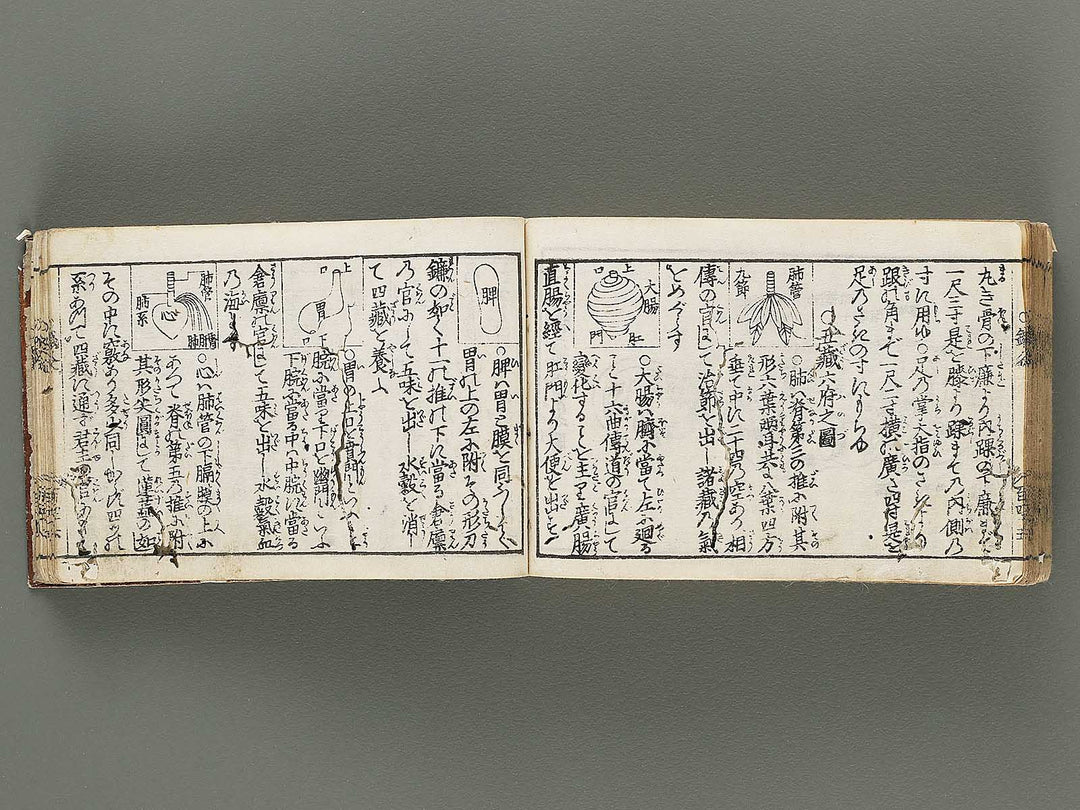 丸き骨の下廉より内踝の下廉
一尺三寸是を膝より踝までの内側の
寸に用ゆ○足の掌大指のさきより
跟の角まで一尺二寸横の廣さ四寸是を
足のさきの寸にもちゆ
○五藏六府之圖
肺管
九節
○肺ハ脊第三の推に附其
形六葉両耳共に八葉四方に
垂て中に二十四の空あり相
傳の官にして治節を出し諸藏の氣
をめぐらす
大腸
上口
肛門
○大腸ハ臍に當て左に廻る
こと十六曲傳道の官にして
變化することを主り廣腸
直腸を經て肛門より大便を出す
脾
○脾ハ胃と膜を同ふして
胃の上の左に附その形刀
鎌の如く十一の推の下に當る倉廩
の官にして五味を出し水穀を消し
て四藏を養ふ
上口
胃
下口
○胃の上口を賁門といふ
上脘に當る下口を幽門といふ
下脘に當る中ハ中脘に當る
倉廩の官にして五味を出し水穀氣血
の海
肺管
心
肺系
○心ハ肺管の下膈膜の上に
あつて脊の第五の推に附
其形尖圓にして蓮蕊の如し
その中に竅あり多少同じからず四の
系あつて四藏に通ず君主の官